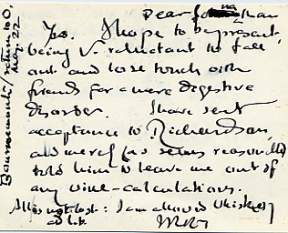 Dear
Yes. I hope to be present,
being v. reluctant to fall
out and lose touch with
friends for a mere digestive
disorder. I have sent
acceptance to Richardson,
and merely (as seems reasonable)
told him to leave me out of
any wine-calculations.
All is not lost: I am allowed whiskey
ad lib.
Bournemouth / return to O.
May 22